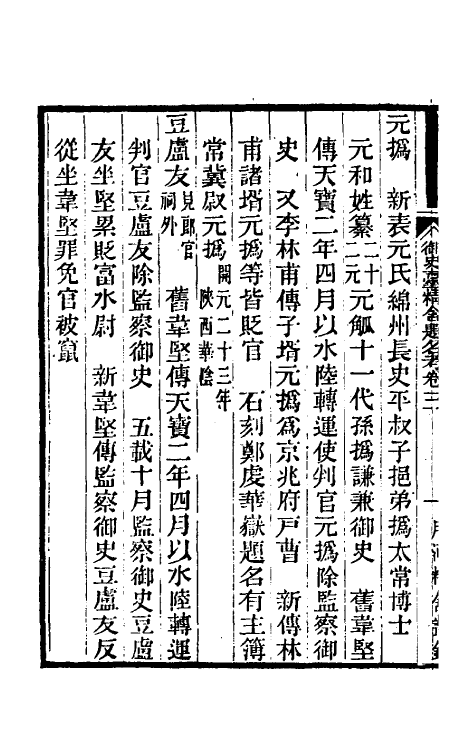 元撝　新表元氏綿州長史平叔子挹弟撝太常博士
元和姓纂二十二元元觚十一代孫撝謙兼御史　舊韋堅
傳天寶二年四月以水陸轉運使判官元撝除監察御
史　又李林甫傳子壻元撝爲京兆府戸曹　新傳林
甫諸壻元撝等皆貶官　石刻鄭虔華嶽題名有主簿
常冀尉元撝開元二十三年陝西華陰
豆盧友見郎官祠外　舊韋堅傳天寶二年四月以水陸轉運
判官豆盧友除監察御史　五載十月監察御史豆盧
友坐堅累貶富水尉　新韋堅傳監察御史豆盧友反
從坐韋堅罪免官被竄